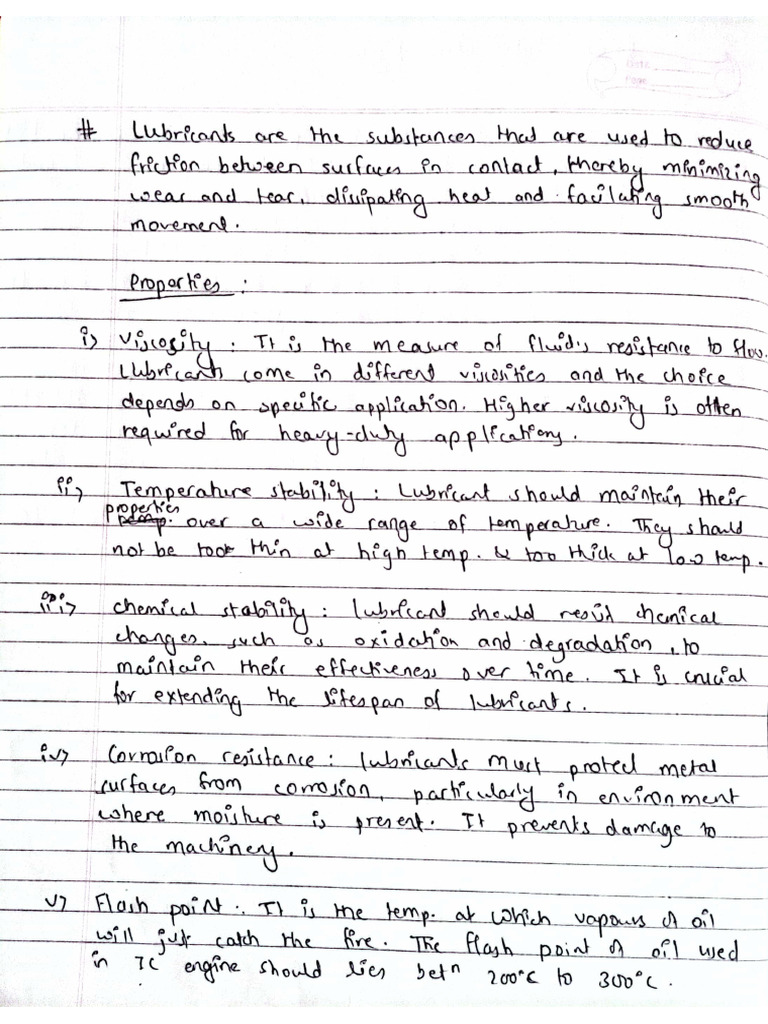 Date
Page
# Lubricants are the substances that are used to reduce
friction between surfaces in contact, thereby minimizing
wear and tear, dissipating heat and facilating smooth
movement.
Properties :
i) Viscosity : It is the measure of fluid's resistance to flow.
Lubricants come in different viscosities and the choice
depends on specific application. Higher viscosity is often
required for heavy-duty applications.
ii) Temperature stability : Lubricant should maintain their
properties over a wide range of temperature. They should
not be too thin at high temp. & too thick at low temp.
iii) chemical stability : Lubricant should resist chemical
changes, such as oxidation and degradation, to
maintain their effectiveness over time. It is crucial
for extending the lifespan of lubricants.
iv) Corrosion resistance : Lubricants must protect metal
surfaces from corrosion, particularly in environment
where moisture is present. It prevents damage to
the machinery.
v) Flash point : It is the temp. at which vapours of oil
will just catch the fire. The flash point of oil used
in IC engine should lies betn 200°C to 300°C.